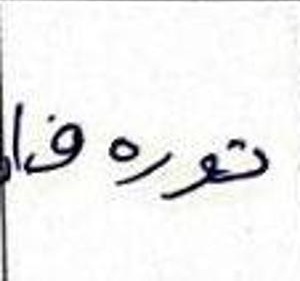 توره فا